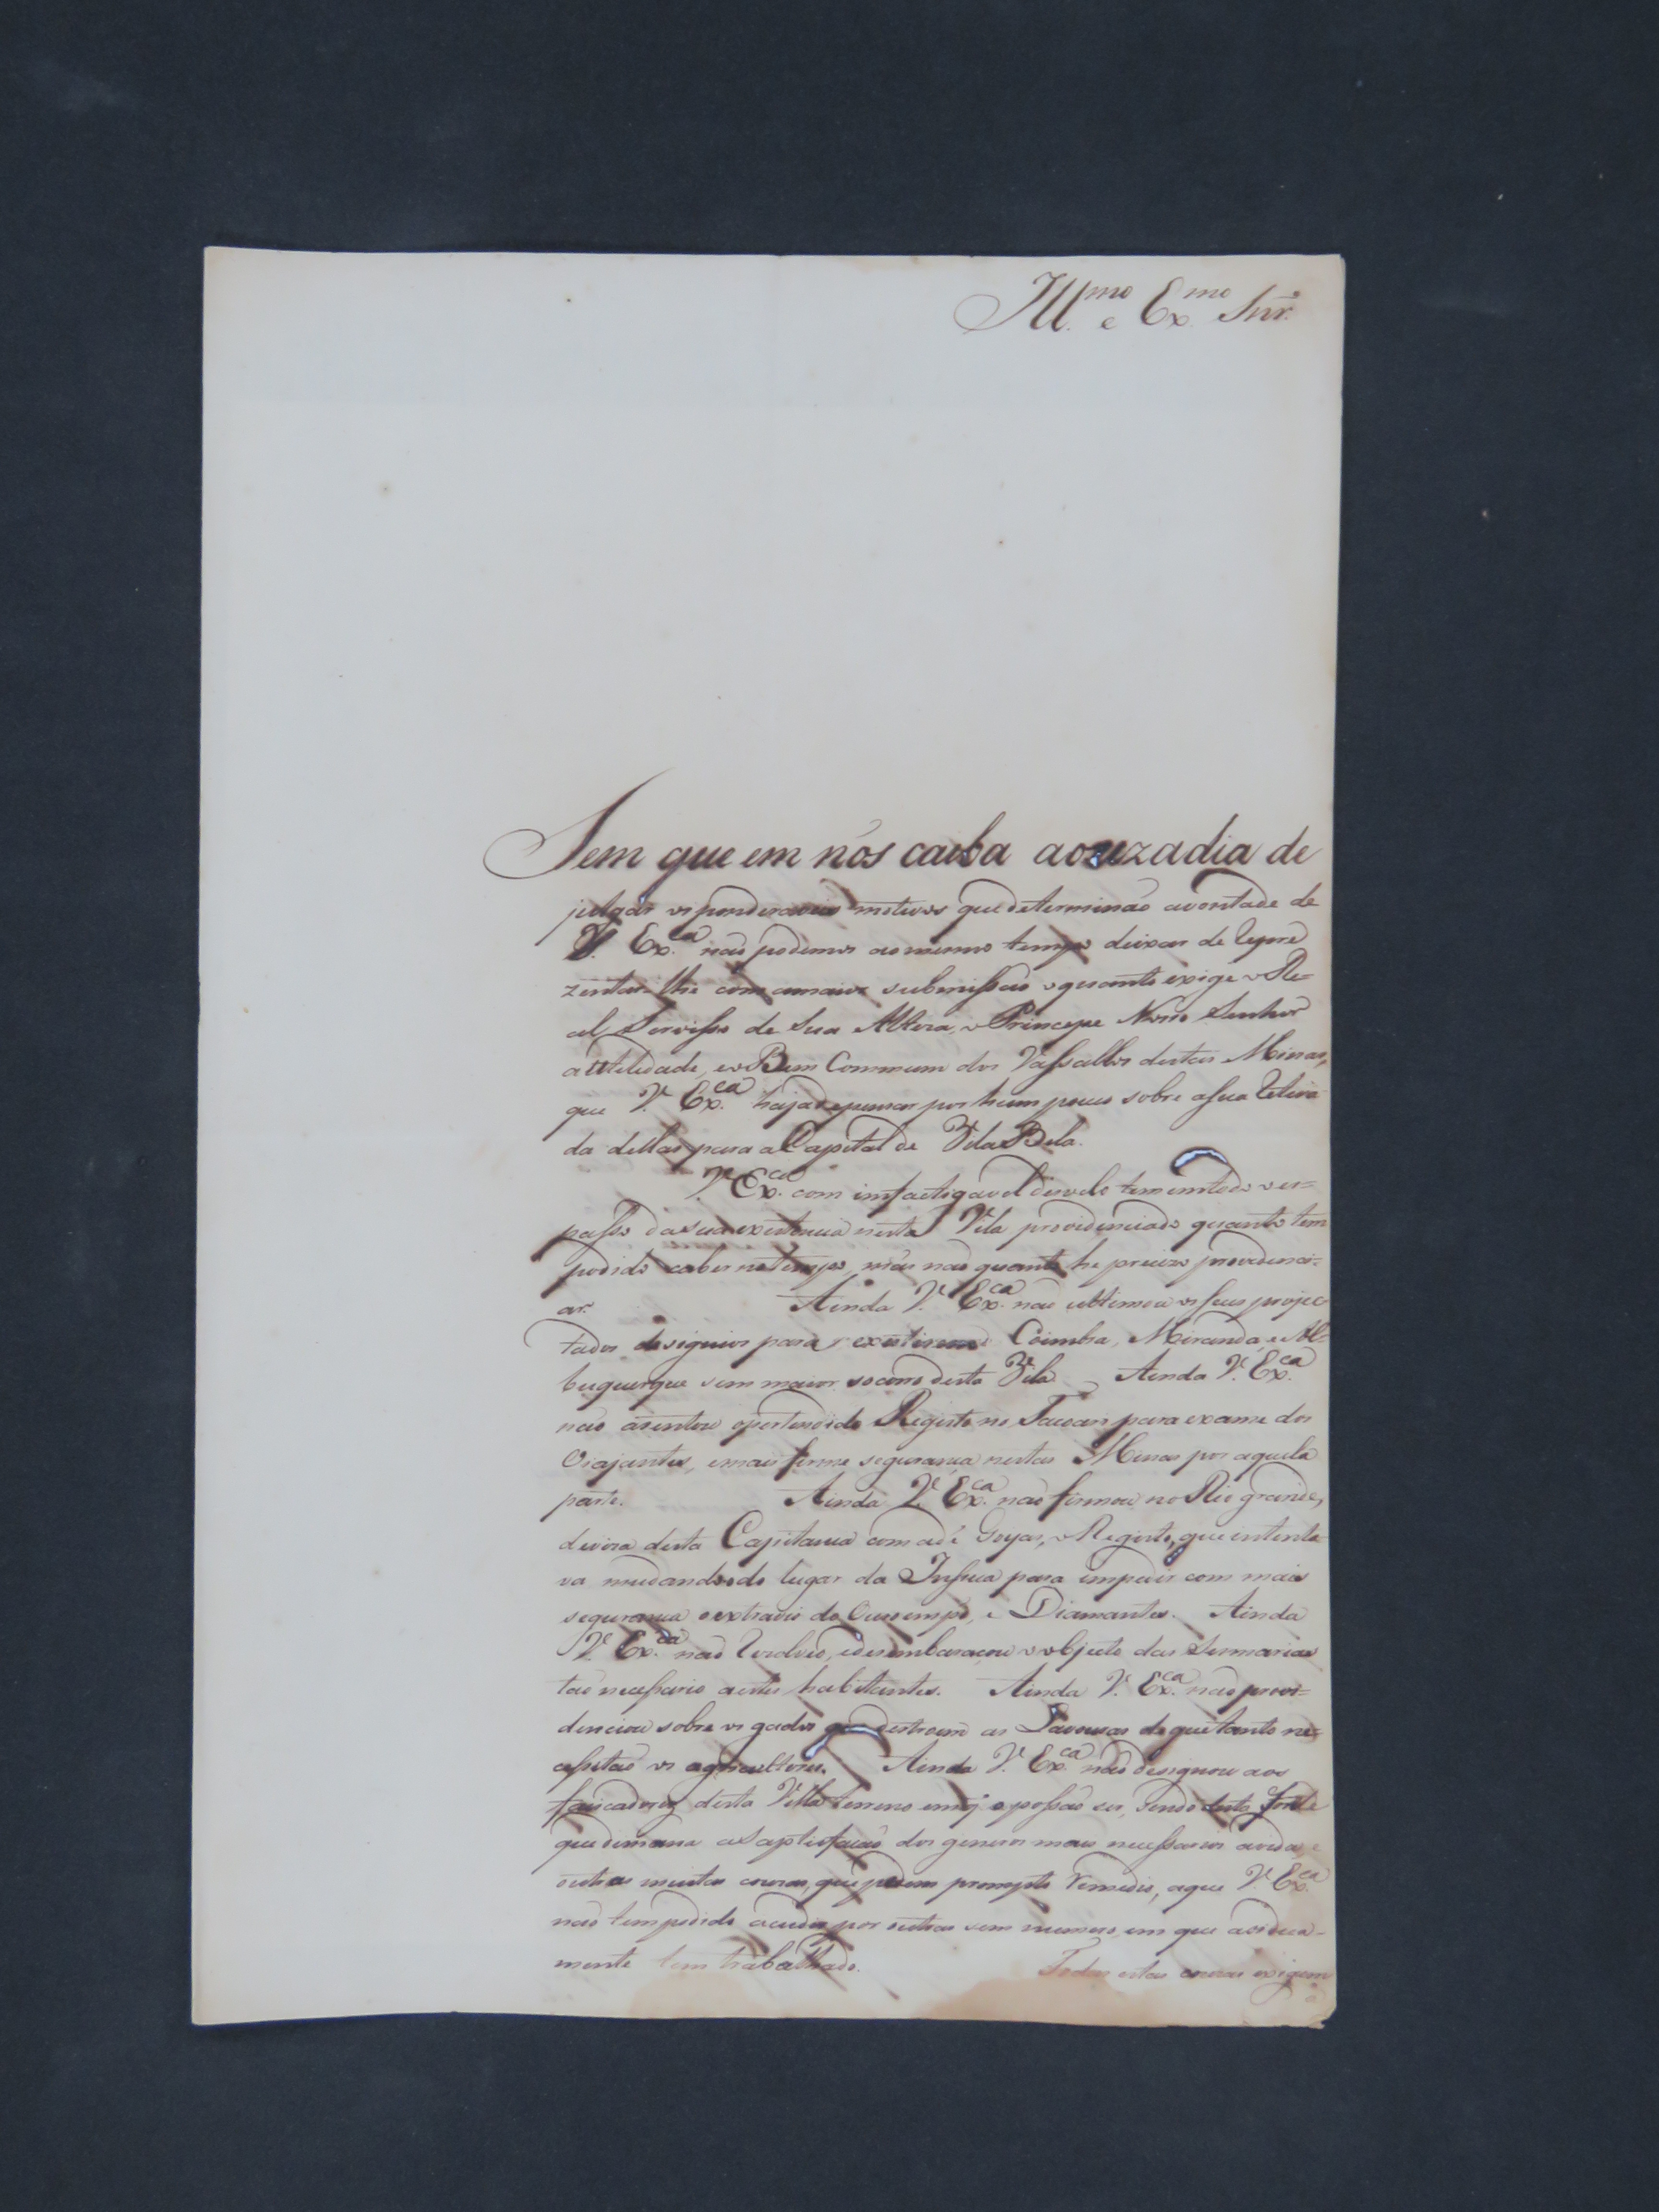 Ill.mo e Ex.mo Snr.
Sem que em nós caiba aouzadia de
julgar os ponderaveis motivos que determinão avontade de
V. Ex.ca não podemos ao mesmo tempo deixar de repre
zentar-lhe com amaior submissão oquanto exige o Re=
al Servisso de Sua Alteza, o Principe Nosso Senhor
autelidade, eo Bem Commum dos Vassallos destas Minas,
que V. Ex.ca haja depensar por hum pouco sobre asua retira
da dellas para a Capital de Vila Bela.
V. Ex.ca com imfactigavel disvelo tem emtodo o es=
passo dasua existencia nesta Vila providenciado quanto tem
podido caber notempo, mas não quanto he precizo providenci=
ar. Ainda V. Ex.ca não ultimou os seus projec
tados designios para existirem Coimbra, Miranda, e Al=
buquerque sem maior socorro desta Vila Ainda V. Ex.ca
não asentou opertendido Registo no Tacoari para exame dos
Viajantes, emais firme segurança nestas Minas por aquela
parte. Ainda V. Ex.ca não firmou no Rio grande,
deviza desta Capitania com ade Goyas, o Registo, que intenta
va mudando do lugar da Insua para impedir com mais
segurança o extravio do Ouro empó, e Diamantes. Ainda
V. Ex.ca não rezolveo, edesembaraçou o objecto das Sesmarias
tão necessario aestes habitantes. Ainda V. Ex.ca não provi=
denciou sobre os gados que destroem as Lavouras de que tanto ne=
cessitão os agricultores. Ainda V. Ex.ca não designou aos
faiscadores desta Villa terreno emq̃ o possão ser, sendo desta fonte
que dimana a Saptisfação dos generos mais necessarios avida, e
outras muitas couzas, que pedem prompto remedio, aque V. Ex.ca
não tem podido acudir por outras sem numero, em que acidua-
mente tem trabalhado. Todas estas couzas exigem
a